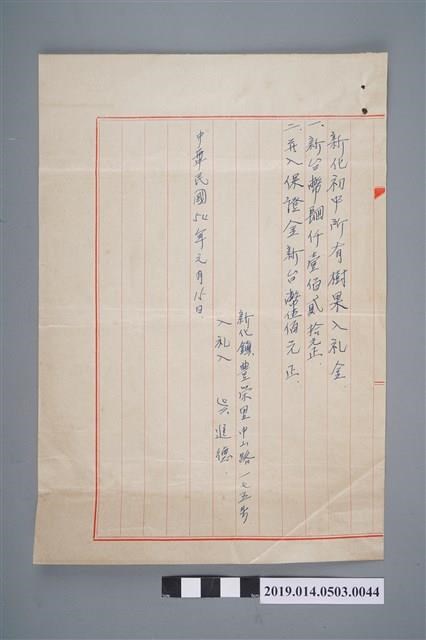 新化初中所有樹果入礼金.
一、新台幣肆仟壹佰貳拾元正.
二、并入保證金新台幣伍佰元正.
新化鎮豊榮里中山路一七五号
入礼人 吳進德.
中華民國54年元月15日.
2019.014.0503.0044